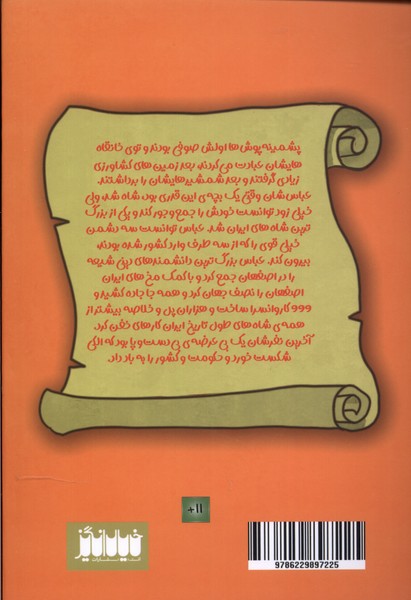 پشمینه‌پوش‌ها اولش صوفی بودند و توی خانقاه
هایشان عبادت می‌کردند. بعد زمین‌های کشاورزی
زیادی گرفتند و بعد شمشیرهایشان را برداشتند.
عباس‌شان وقتی یک بچه‌ی این قدری بود، شاه شد. ولی
خیلی زود توانست خودش را جمع و جور کند و یکی از بزرگ
ترین شاه‌های ایران شد. عباس توانست سه دشمن
خیلی قوی را که از سه طرف وارد کشور شده بودند،
بیرون کند. عباس بزرگ‌ترین دانشمندهای دینی شیعه
را در اصفهان جمع کرد و با کمک مخ‌های ایران
اصفهان را نصف جهان کرد و همه جا جاده کشید و
۹۹۹ کاروانسرا ساخت و هزاران پل و خلاصه بیشتر از
همه‌ی شاه‌های طول تاریخ ایران کارهای خفن کرد.
آخرین نفرشان یک بی عرضه‌ی بی دست و پا بود که الکی
شکست خورد و حکومت و کشور را به باد داد.
+۱۱
خیلی‌انگیز
انتشارات
9786229897225